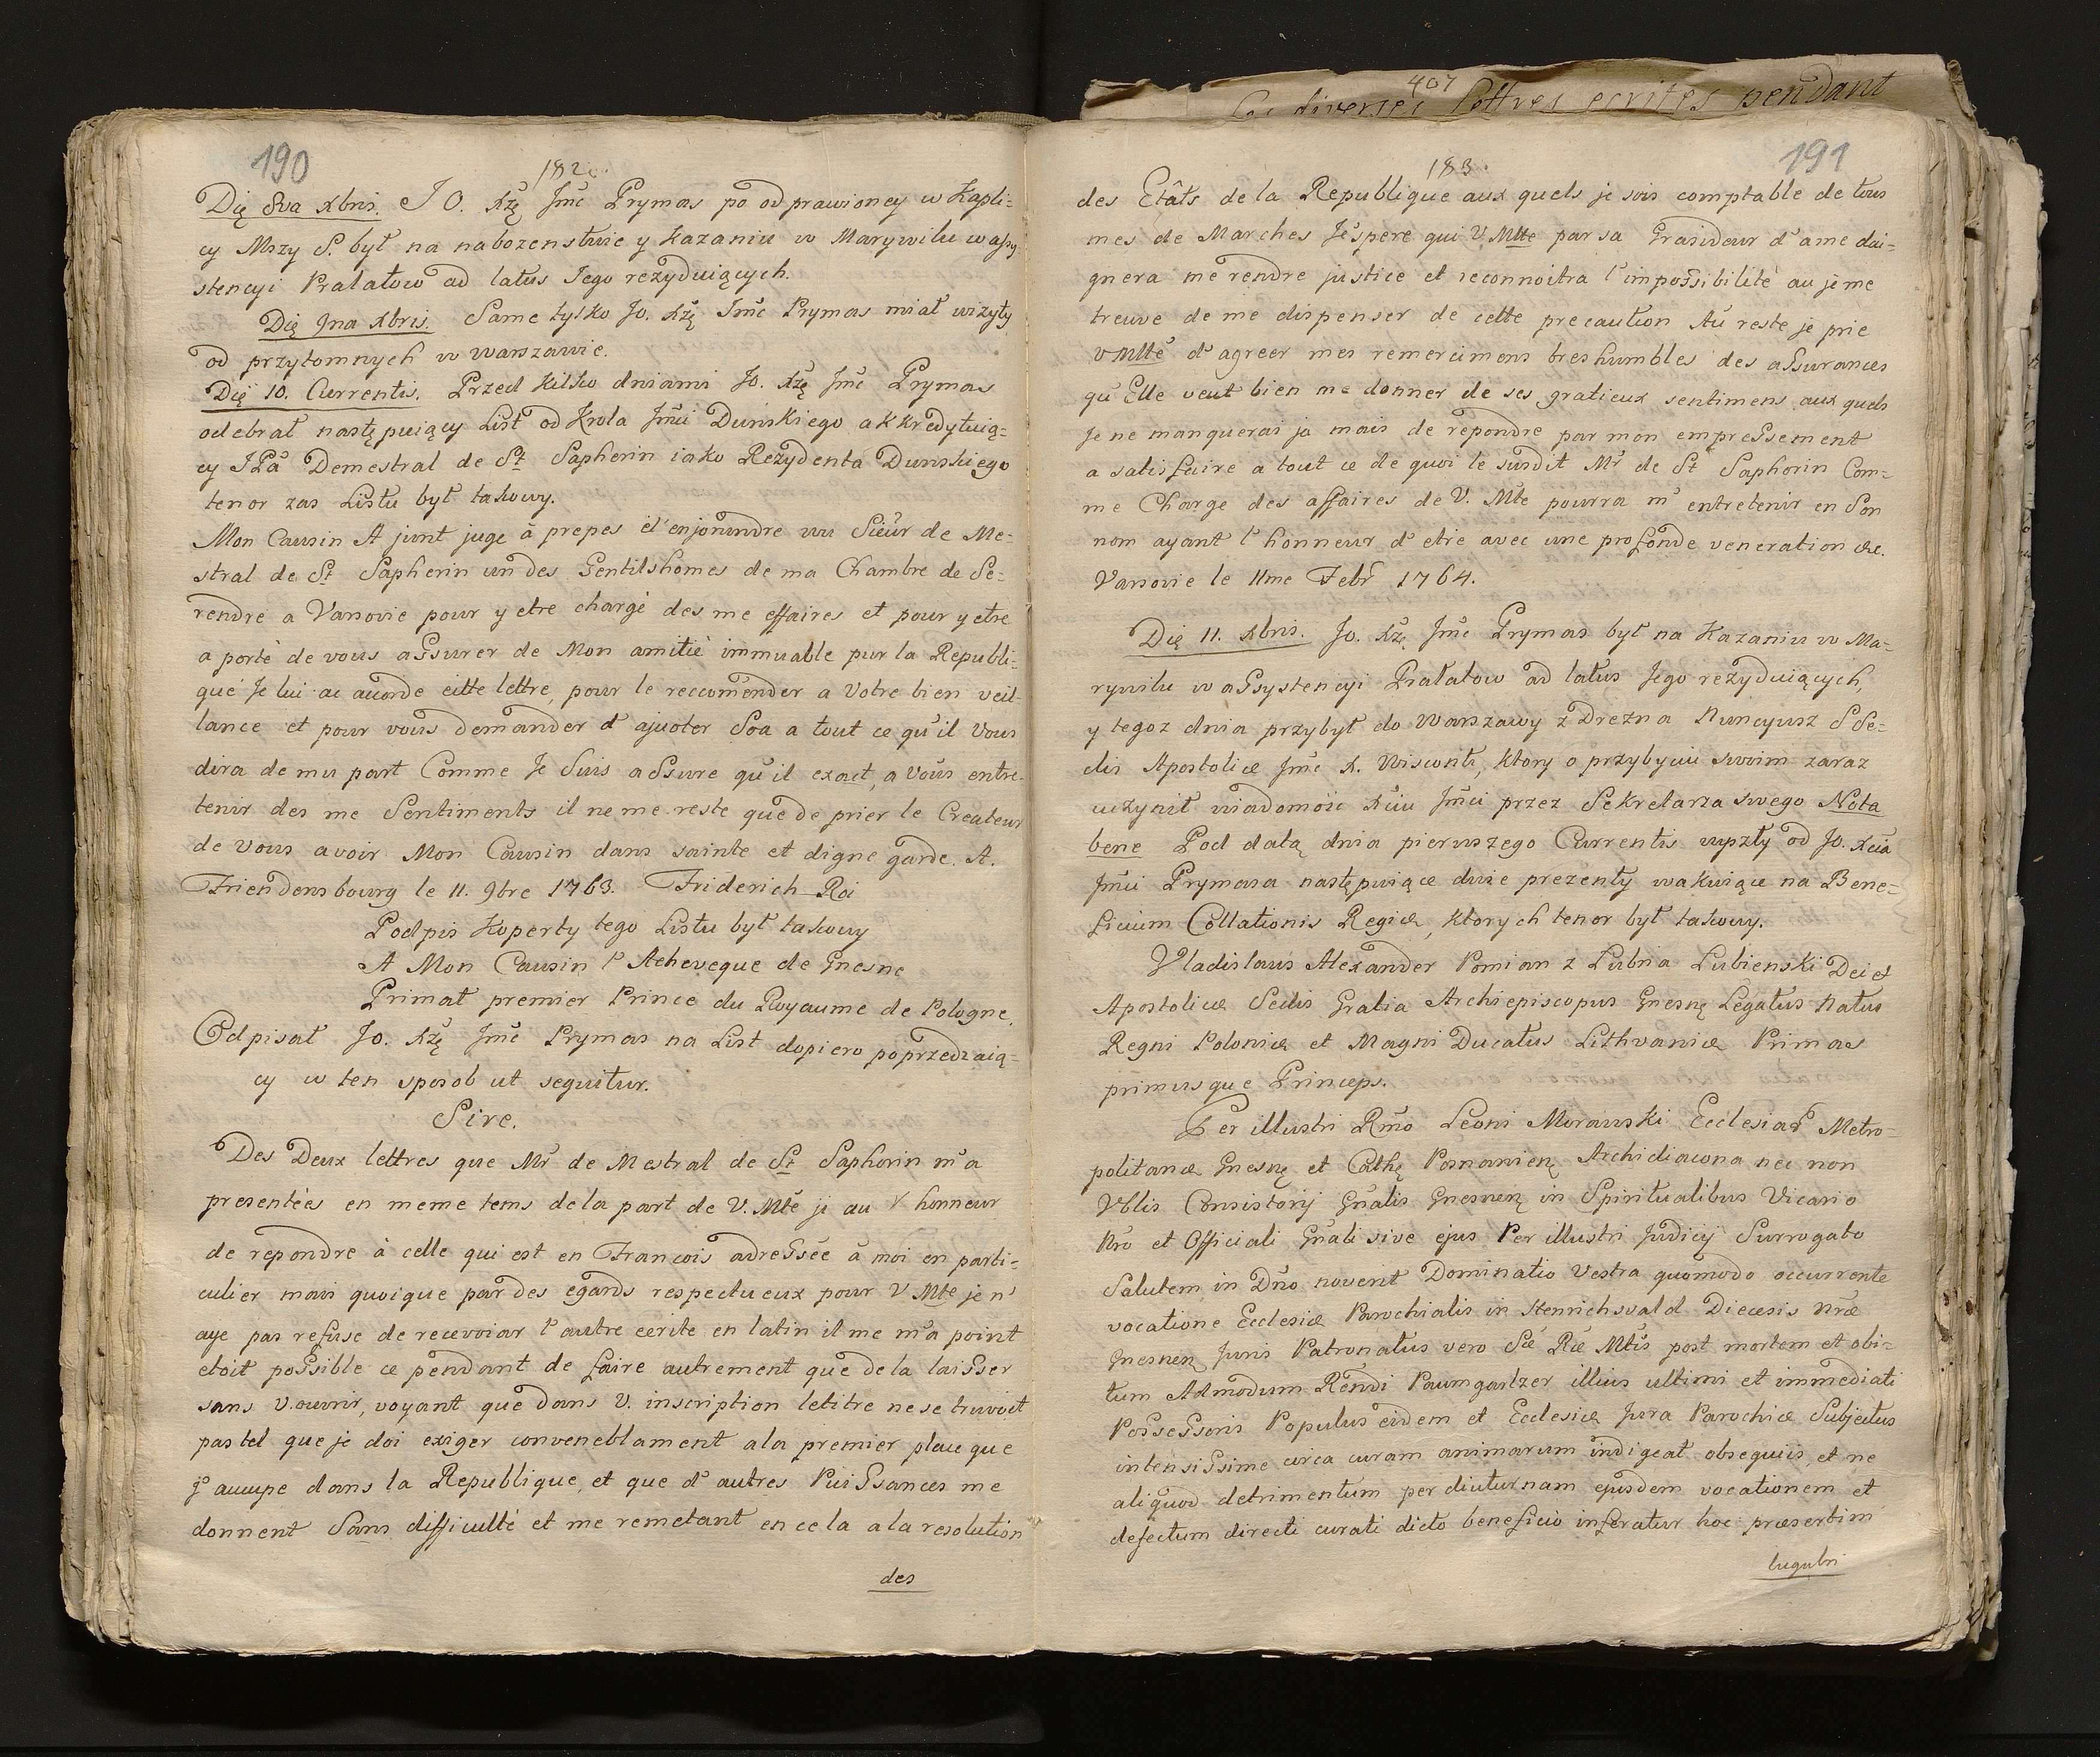 190
182.
Dię 8va Xbris. J O. Xżę Jmć Prymas po odprawioney w Kapli=
cy Mszy S. był na nabozenstwie y Kazaniu w Marywilu w assy=
stencyi Prałatow ad latus Jego rezyduiących.
Dię 9na Xbris. Same tylko Jo. Xżę Jmć Prymas miał wizyty
od przytomnych w Warszawie.
Dię 10. Currentis. Przed kilko dniami Jo. Xżę Jmć Prymas
odebrał następuiący List od Krola Jmći Dunskiego akkredytuią=
cy JPa Demestral de St Sapherin iako Rezydenta Dunskiego
tenor zas Listu był takowy.
Mon Causin A junt juge à prepes d'enjonundre uu Sieur de Me=
stral de St Sapherin un des Gentilshomes de ma Chambre de Se=
rendre a Varsovie pour y etre chargé des me effaires et pour y etre
a portè de vous assurer de Mon amitiè immuable pur la Republi=
que Je lui ai acorde citte lettre, pour le reccomender a Votre bien veil=
lance et pour vous demander d' ajuoter Soa a tout ce qu'il Vous
dira de mu part Comme Je Suis assure qu'il exact, a Vous entre=
tenir des me Sentiments il ne me reste que de prier le Createur
de Vous avoir Mon Causin dans sainte et digne garde. A.
Friendensbourg le 11. 9bre 1763. Friderich Roi
Podpis Koperty tego Listu był takowy
A Mon Causin l' Acheveque de Gnesne
Primat premier Prince du Royaume de Pologne,
Odpisał Jo. Xżę Jmć Prymas na List dopiero poprzedzaią=
cy w ten sposob ut sequitur.
Sire.
Des Deux lettres que Mr de Mestral de St Saphorin m'a
presentées en meme tems de la part de V. Mté ji au l' honneur
de repondre à celle qui est en Francois adressée à moi en parti=
culier mais quoique par des egards respectueux pour V Mté je n'
aye pas refuse de recevoiar l' autre ecrite en latin il me m'a point
etoit possible ce pendant de faire autrement que de la laisser
sans V. ouvrir, voyant que dans V. inscription le titre ne se truvoit
pas tel que je doi exiger conveneblament a la premier place que
j' accupe dans la Republique, et que d' autres Puissances me
donnent Sans difficultè et me remetant en ce la a la resolution
des
407
les diverses lettres ecrites pendant
191
183.
des Etâts de la Republique aux quels je sois comptable de tous
mes de Marches Jéspere qui V. Mtte par sa Grandeur d'ame dai=
gnera me rendre justice et reconnoitra l'impossibilité au je me
treuve de me dispenser de cette precaution Au reste je prie
V Mtte d' agreer mes remercimens treshumbles des assurances
qu' Elle veut bien me donner de ses gratieux sentimens aux quels
Je ne manquerai ja mais de repondre par mon empressement
a satisfaire a tout ce de quoi le susdit Mr de St Saphorin Com=
me Charge des affaires de V. Mte pourra m' entretenir en Son
nom ayant l' honneur d' etre avec une profonde veneration &c.
Varsovie le 11me Febr 1764.
Dię 11. Xbris. Jo. Xżę Jmć Prymas był na Kazaniu w Ma=
rywilu w assystencyi Prałatow ad latus Jego rezyduiących,
y tegoz dnia przybył do Warszawy z Drezna Nuncyusz S Se=
dis Apostolicæ Jmć X. Wisconti, ktory o przybyciu swoim zaraz
uczynił wiadomosc Xciu Jmći przez Sekretarza swego Nota
bene Pod datą dnia pierwszego Currentis wyszły od Jo. Xcia
Jmći Prymasa następuiące dwie prezenty wakuiące na Bene=
ficium Collationis Regiæ, ktorych tenor był takowy.
Vladislaus Alexander Pomian z Lubna Lubienski Dei et
Apostolicæ Sedis Gratia Archiepiscopus Gnesnę Legatus Natus
Regni Poloniæ et Magni Ducatus Lithvaniæ Primas
primusque Princeps.
Per illustri Rmo Leoni Morawski Ecclesiar Metro=
politanæ Gnesnę et Cathę Posnanieñ Archidiacona nec non
Vblis Consistorij Gnalis Gnesneñ in Spiritualibus Vicario
Nro et Officiali Gnali sive ejus Per illustri Judicij Surrogato
Salutem in Dno noverit Dominatio Vestra quomodo occurrente
vocatione Ecclesiæ Parochialis in Henrichswald Diecesis Nræ
Gnesneñ Juris Patronatus vero Sæ Ræ Mtis post mortem et obi=
tum Admodum Rendi Paumgartzer illius ultimi et immediati
Possessoris Populus eidem et Ecclesiæ Jura Parochiæ Subjectus
intensissime circa curam animarum indigeat obsequiis, et ne
aliquod detrimentum per diuturnam ejusdem vocationem et
defectum directi curati dicto beneficio inferatur hoc præsertim
lugubri